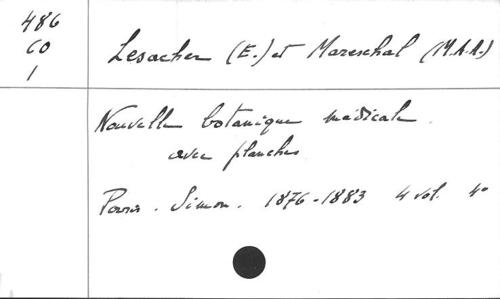 486
60
1
Lesacher (E.) et Mareschal (M.A.A.)
Nouvelle botanique médicale.
avec planches
Paris. Simon. 1876-1883 4 vol. 4°